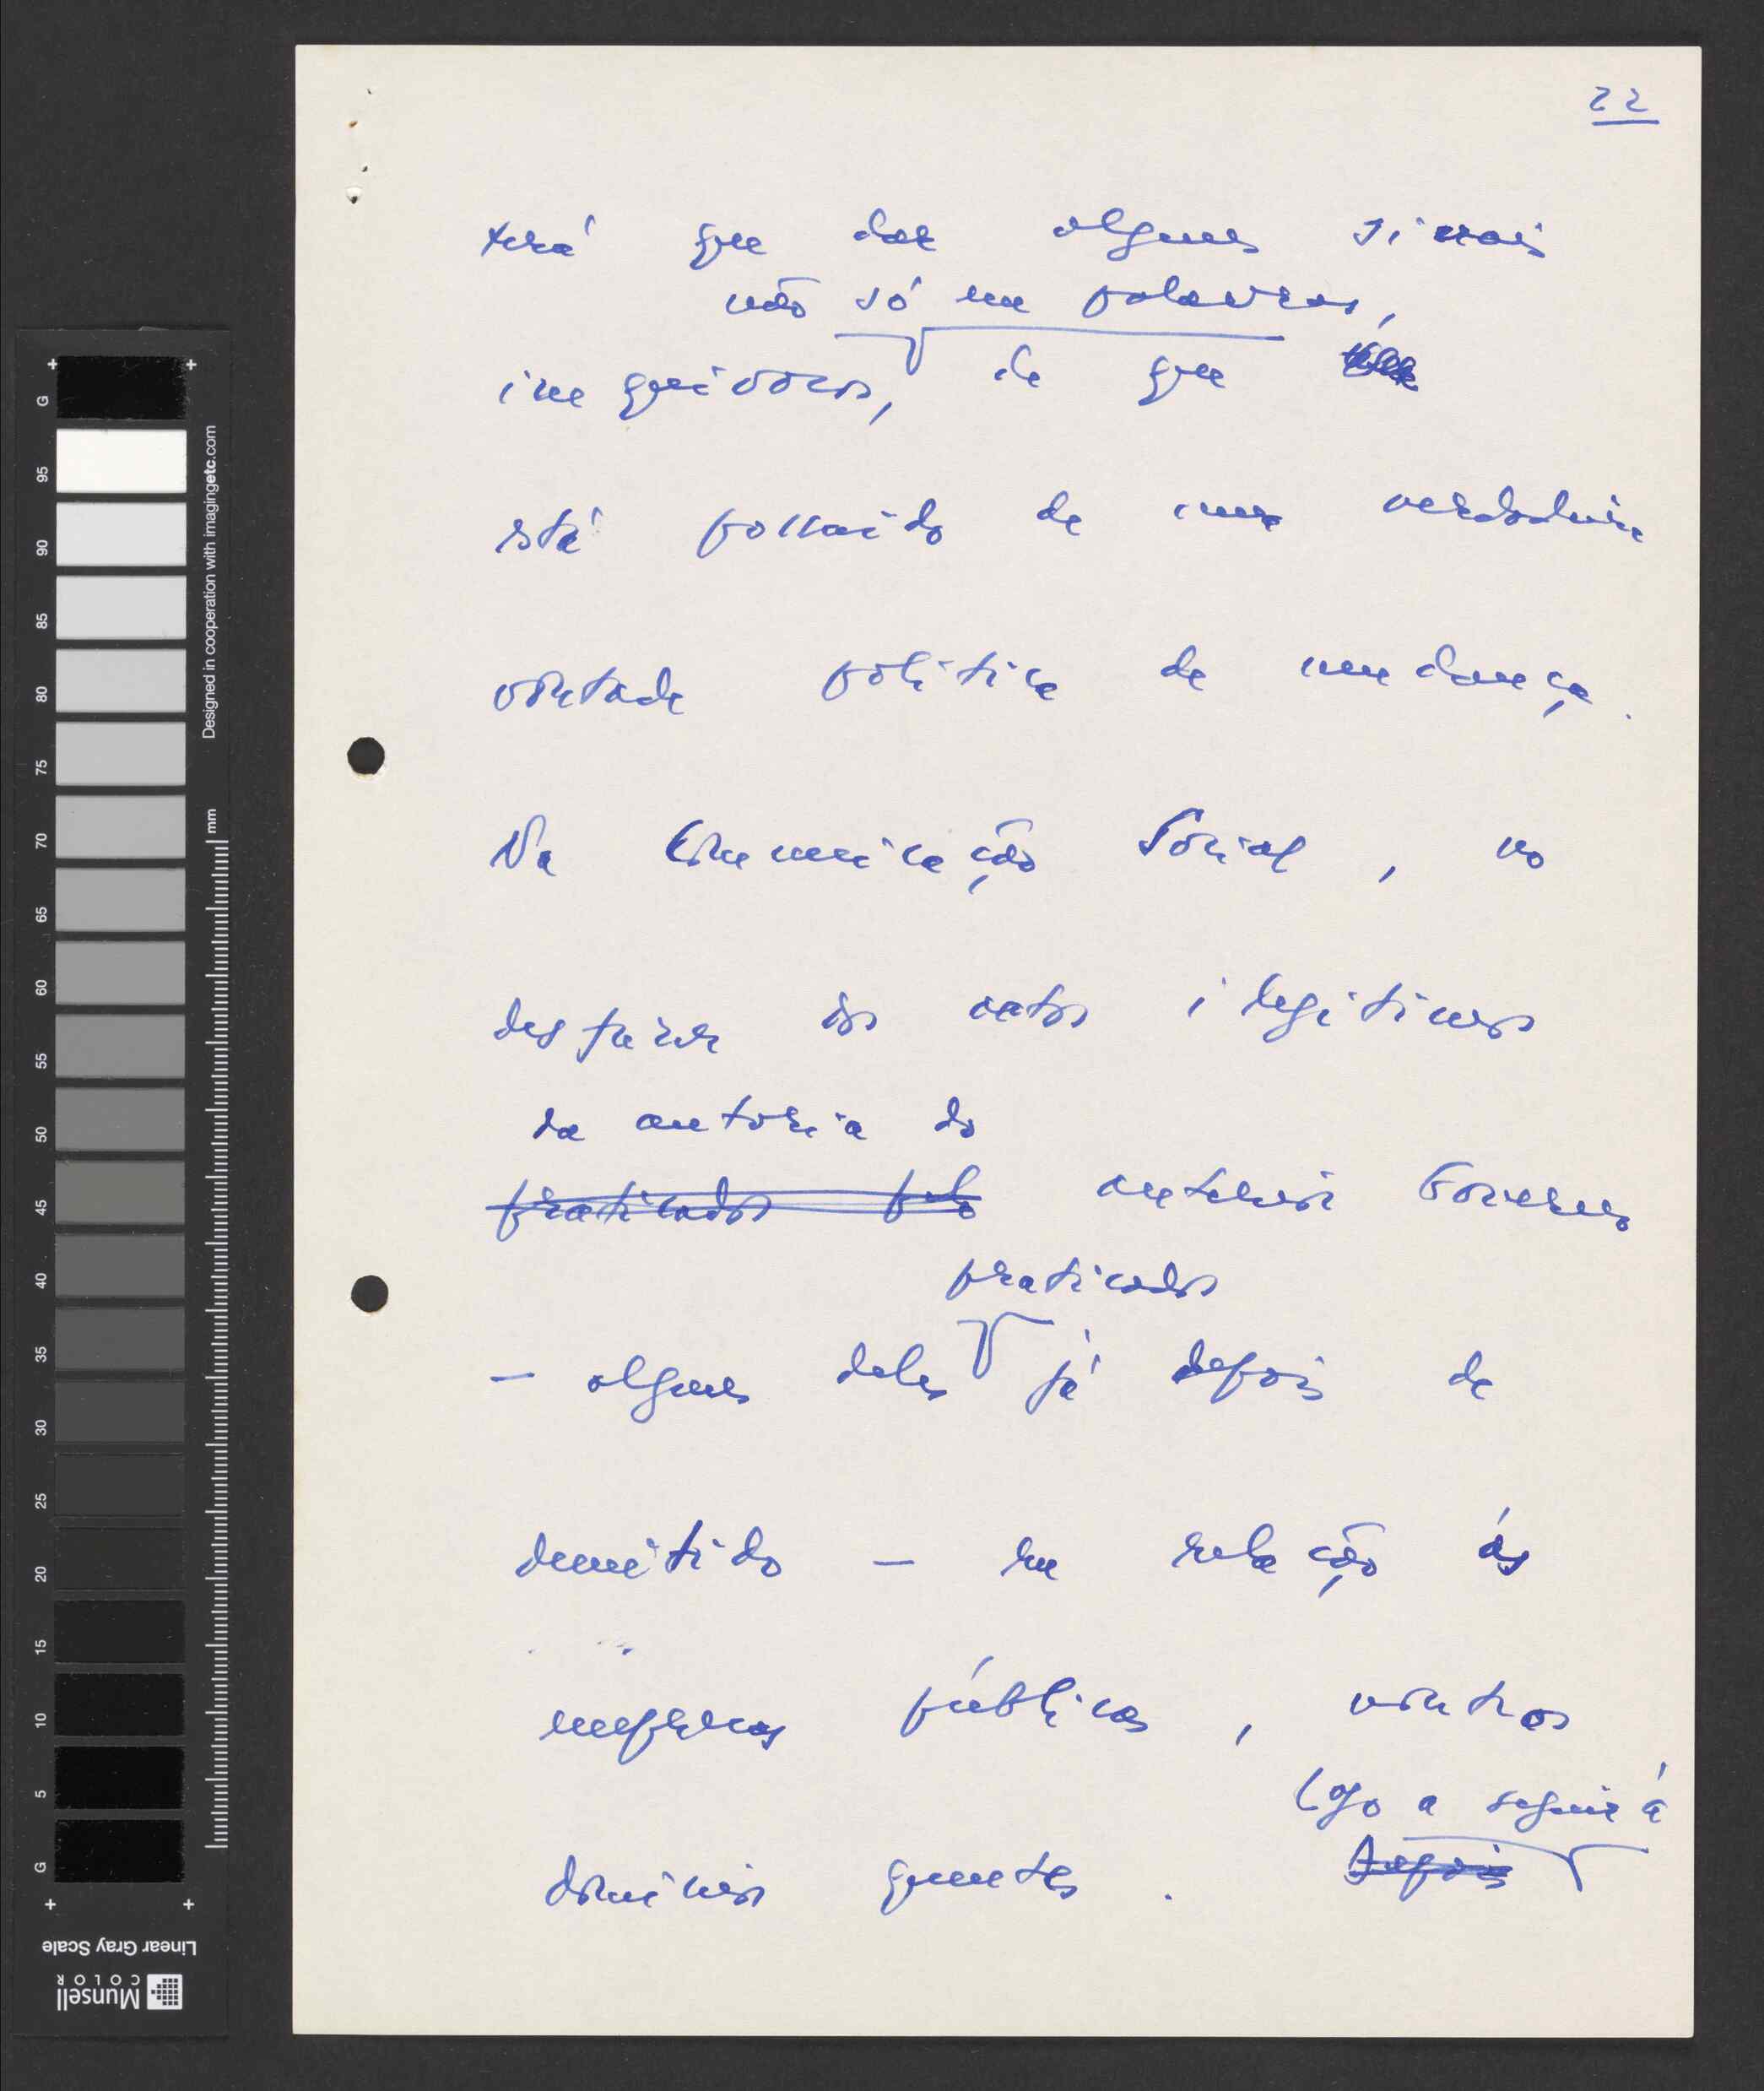 22
terá que dar alguns sinais
não só em palavras,
inequívocos, de que
está possuído de uma verdadeira
vontade política de mudança.
Na Comunicação Social, no
desfazer dos actos ilegítimos
da autoria do
praticados pelo anterior Governo
praticados
— alguns deles já depois de
demitido — em relação às
empresas públicas, vários outros
logo a seguir à
domínios quentes. Depois
G
95
90
85
80
75
70
65
60
55
50
45
40
35
30
25
20
15
10
5
G
mm
Designed in cooperation with imagingetc.com
Linear Gray Scale
Munsell
COLOR